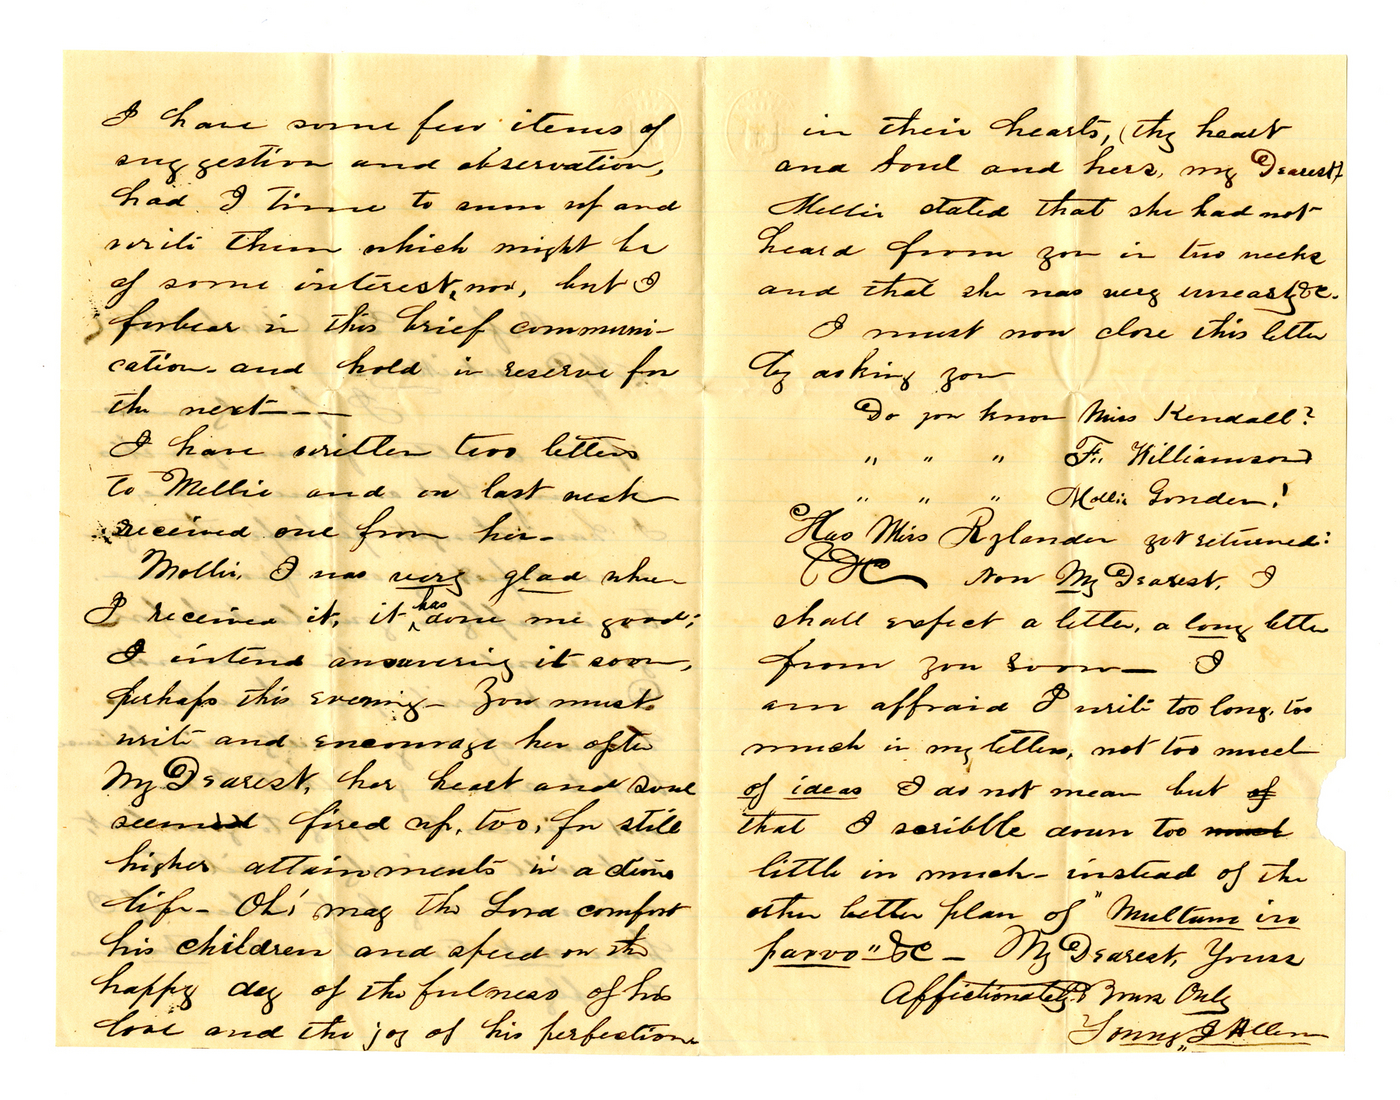 I have some few items of
suggestion and observation,
had I time to sum up and
write them which might be
of some interest, now, but I
forbear in this brief communi-
cation - and hold in reserve for
the next - - -
I have written two letters
to Mellie and on last week
received one from her -
Mollie, I was very glad when
I received it, it has done me good;
I intend answering it soon,
perhaps this evening - You must
write and encourage her often
My Dearest, her heart and soul
seemed fired up, too, for still
higher attainments in a divine
life - Oh! may the Lord comfort
his children and speed on the
happy day of the fulness of his
love and the joy of his perfections
in their hearts, (thy heart
and soul and hers, my Dearest)
Mellie stated that she had not
heard from you in two weeks
and that she was very uneasy &c.
I must now close this letter
by asking you
Do you know Miss Kendall?
" " " F. Williamson
" " " Mollie Gonder!
Has Miss Rylander yet returned:
&c Now My Dearest, I
shall expect a letter, a long letter
from you soon - I
am affraid I write too long, too
much in my letters, not too much
of ideas I do not mean but of
that I scribble down too much
little in much - instead of the
other better plan of "Multum in
parvo" &c - My Dearest, Yours
Affictionately & Yours Only
Young J Allen